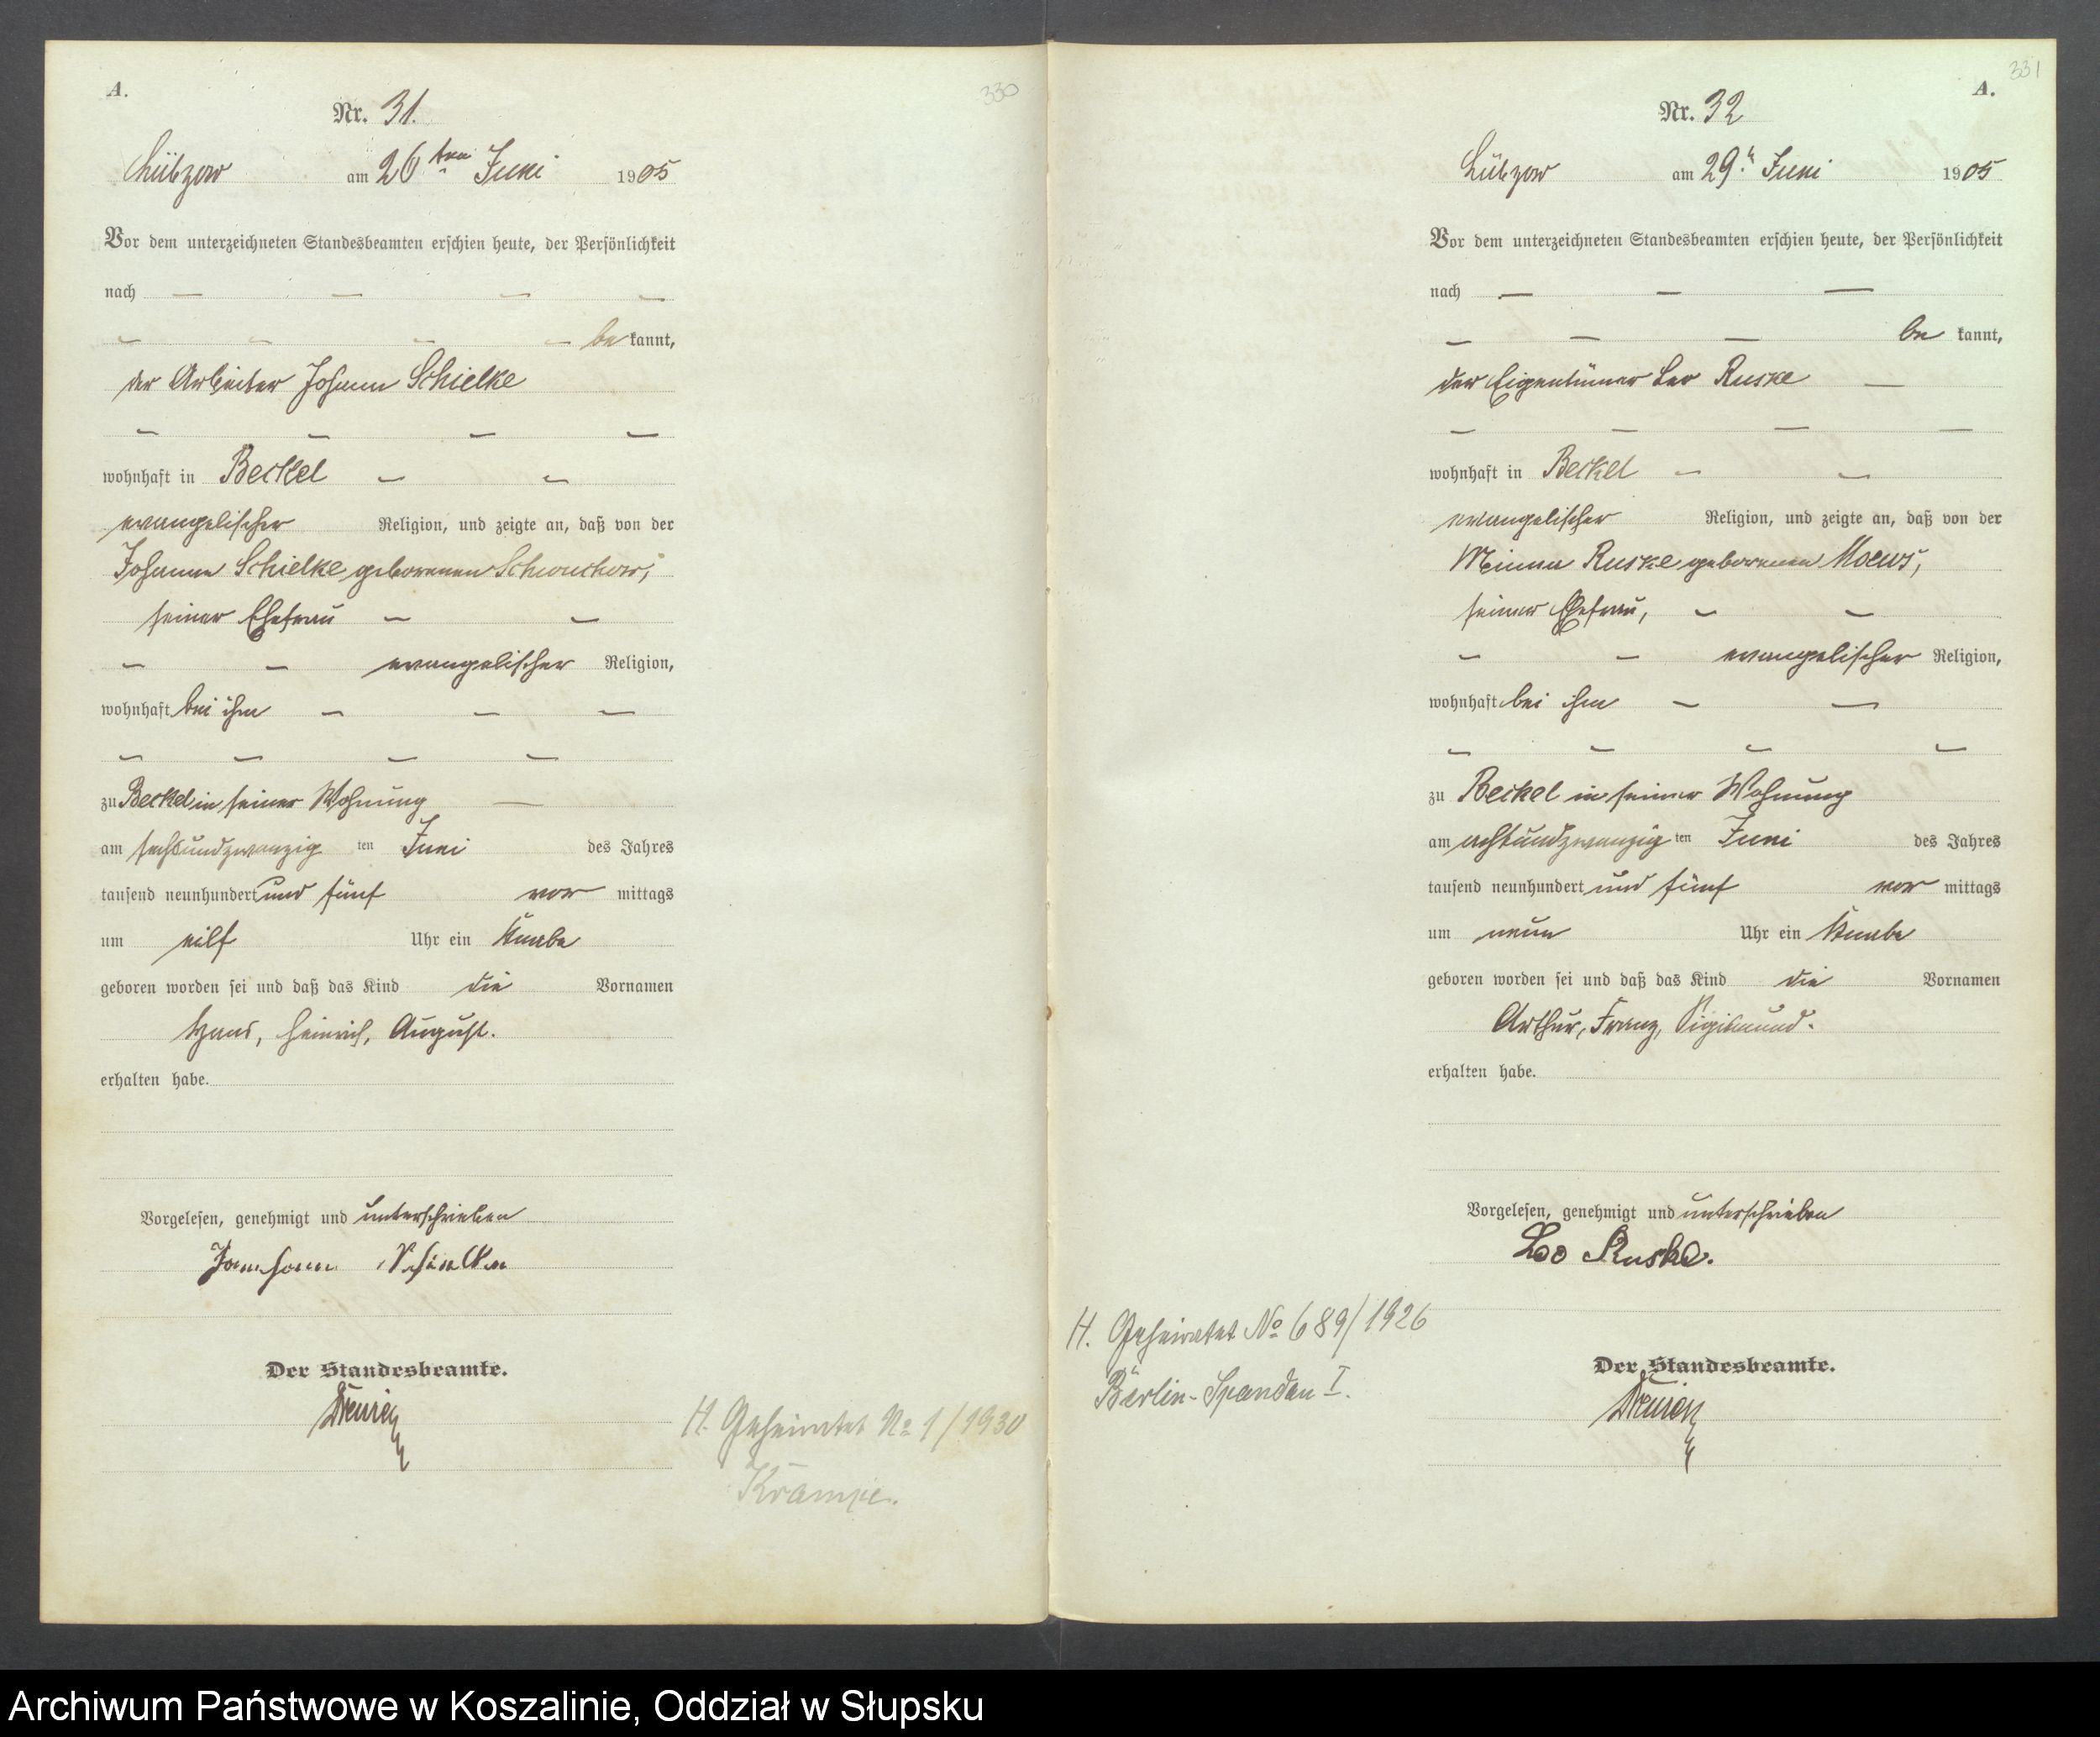 A.
330
Nr. 31.
Lübzow am 26ten Juni 1905
Vor dem unterzeichneten Standesbeamten erschien heute, der Persönlichkeit
nach — — — —
— — — — be kannt,
der Arbeiter Johann Schielke
— — — —
wohnhaft in Beckel — —
evangelischer Religion, und zeigte an, daß von der
Johanna Schielke geborenen Schwuchow,
seiner Ehefrau — —
— — evangelischer Religion,
wohnhaft bei ihm — — —
— — — —
zu Beckel in seiner Wohnung —
am sechsundzwanzig ten Juni des Jahres
tausend neunhundert und fünf vor mittags
um eilf Uhr ein Knabe
geboren worden sei und daß das Kind die Vornamen
Hans, Heinrich, August.
erhalten habe.
Vorgelesen, genehmigt und unterschrieben
Schielke
Der Standesbeamte.
H. Geheiratet No 1/1930
Krampe.
331
A.
Nr. 32
Lübzow am 29. Juni 1905
Vor dem unterzeichneten Standesbeamten erschien heute, der Persönlichkeit
nach — — —
— — — be kannt,
der Eigentümer Leo Ruske —
— — — —
wohnhaft in Beckel — —
evangelischer Religion, und zeigte an, daß von der
Minna Ruske geborenen Moews,
seiner Ehefrau, — —
— — evangelischer Religion,
wohnhaft bei ihm — —
— — — —
zu Beckel in seiner Wohnung
am achtundzwanzig ten Juni des Jahres
tausend neunhundert und fünf vor mittags
um neun Uhr ein Knabe
geboren worden sei und daß das Kind die Vornamen
Arthur, Franz, Sigismund.
erhalten habe.
Vorgelesen, genehmigt und unterschrieben
Leo Ruske.
H. Geheiratet No 689/1926
Berlin-Spandau I.
Der Standesbeamte.
Archiwum Państwowe w Koszalinie, Oddział w Słupsku